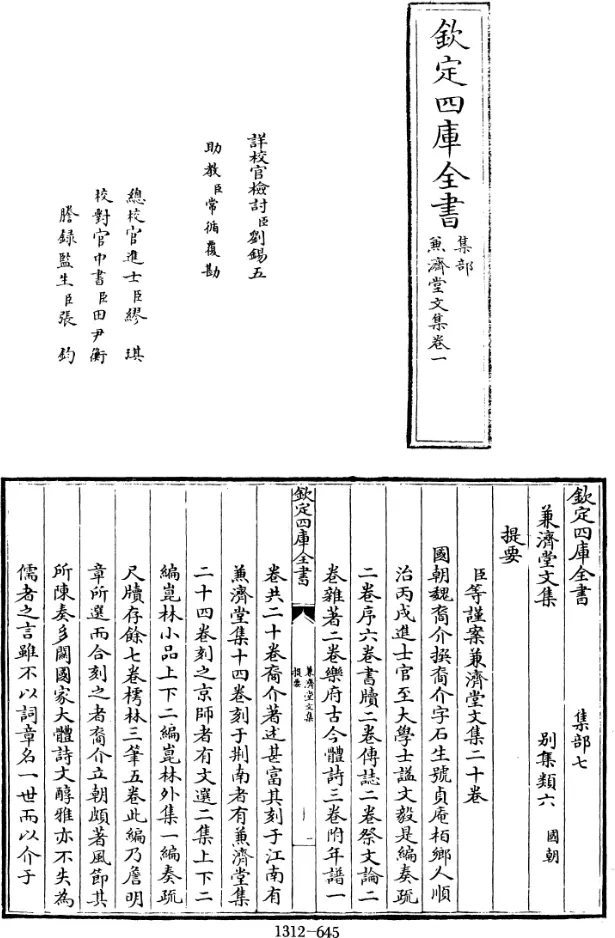 欽定四庫全書
集部
兼濟堂文集卷一
詳校官檢討臣劉錫五
助教臣常循覆勘
總校官進士臣繆琪
校對官中書臣田尹衡
謄錄監生臣張鈞
欽定四庫全書 集部七
兼濟堂文集 別集類六 國朝
提要
臣等謹案兼濟堂文集二十卷
國朝魏裔介撰裔介字石生號貞庵栢鄉人順
治丙戌進士官至大學士謚文毅是編奏疏
二卷序六卷書牘二卷傳誌二卷祭文論二
卷雜著二卷樂府古今體詩三卷附年譜一
欽定四庫全書
兼濟堂文集
提要
一
卷共二十卷裔介著述甚富其刻于江南有
兼濟堂集十四卷刻于荆南者有兼濟堂集
二十四卷刻之京師者有文選二集上下二
編崑林小品上下二編崑林外集一編奏疏
尺牘存餘七卷樗林三筆五卷此編乃詹明
章所選而合刻之者裔介立朝頗著風節其
所陳奏多闗國家大體詩文醇雅亦不失為
儒者之言雖不以詞章名一世而以介于
1312-645